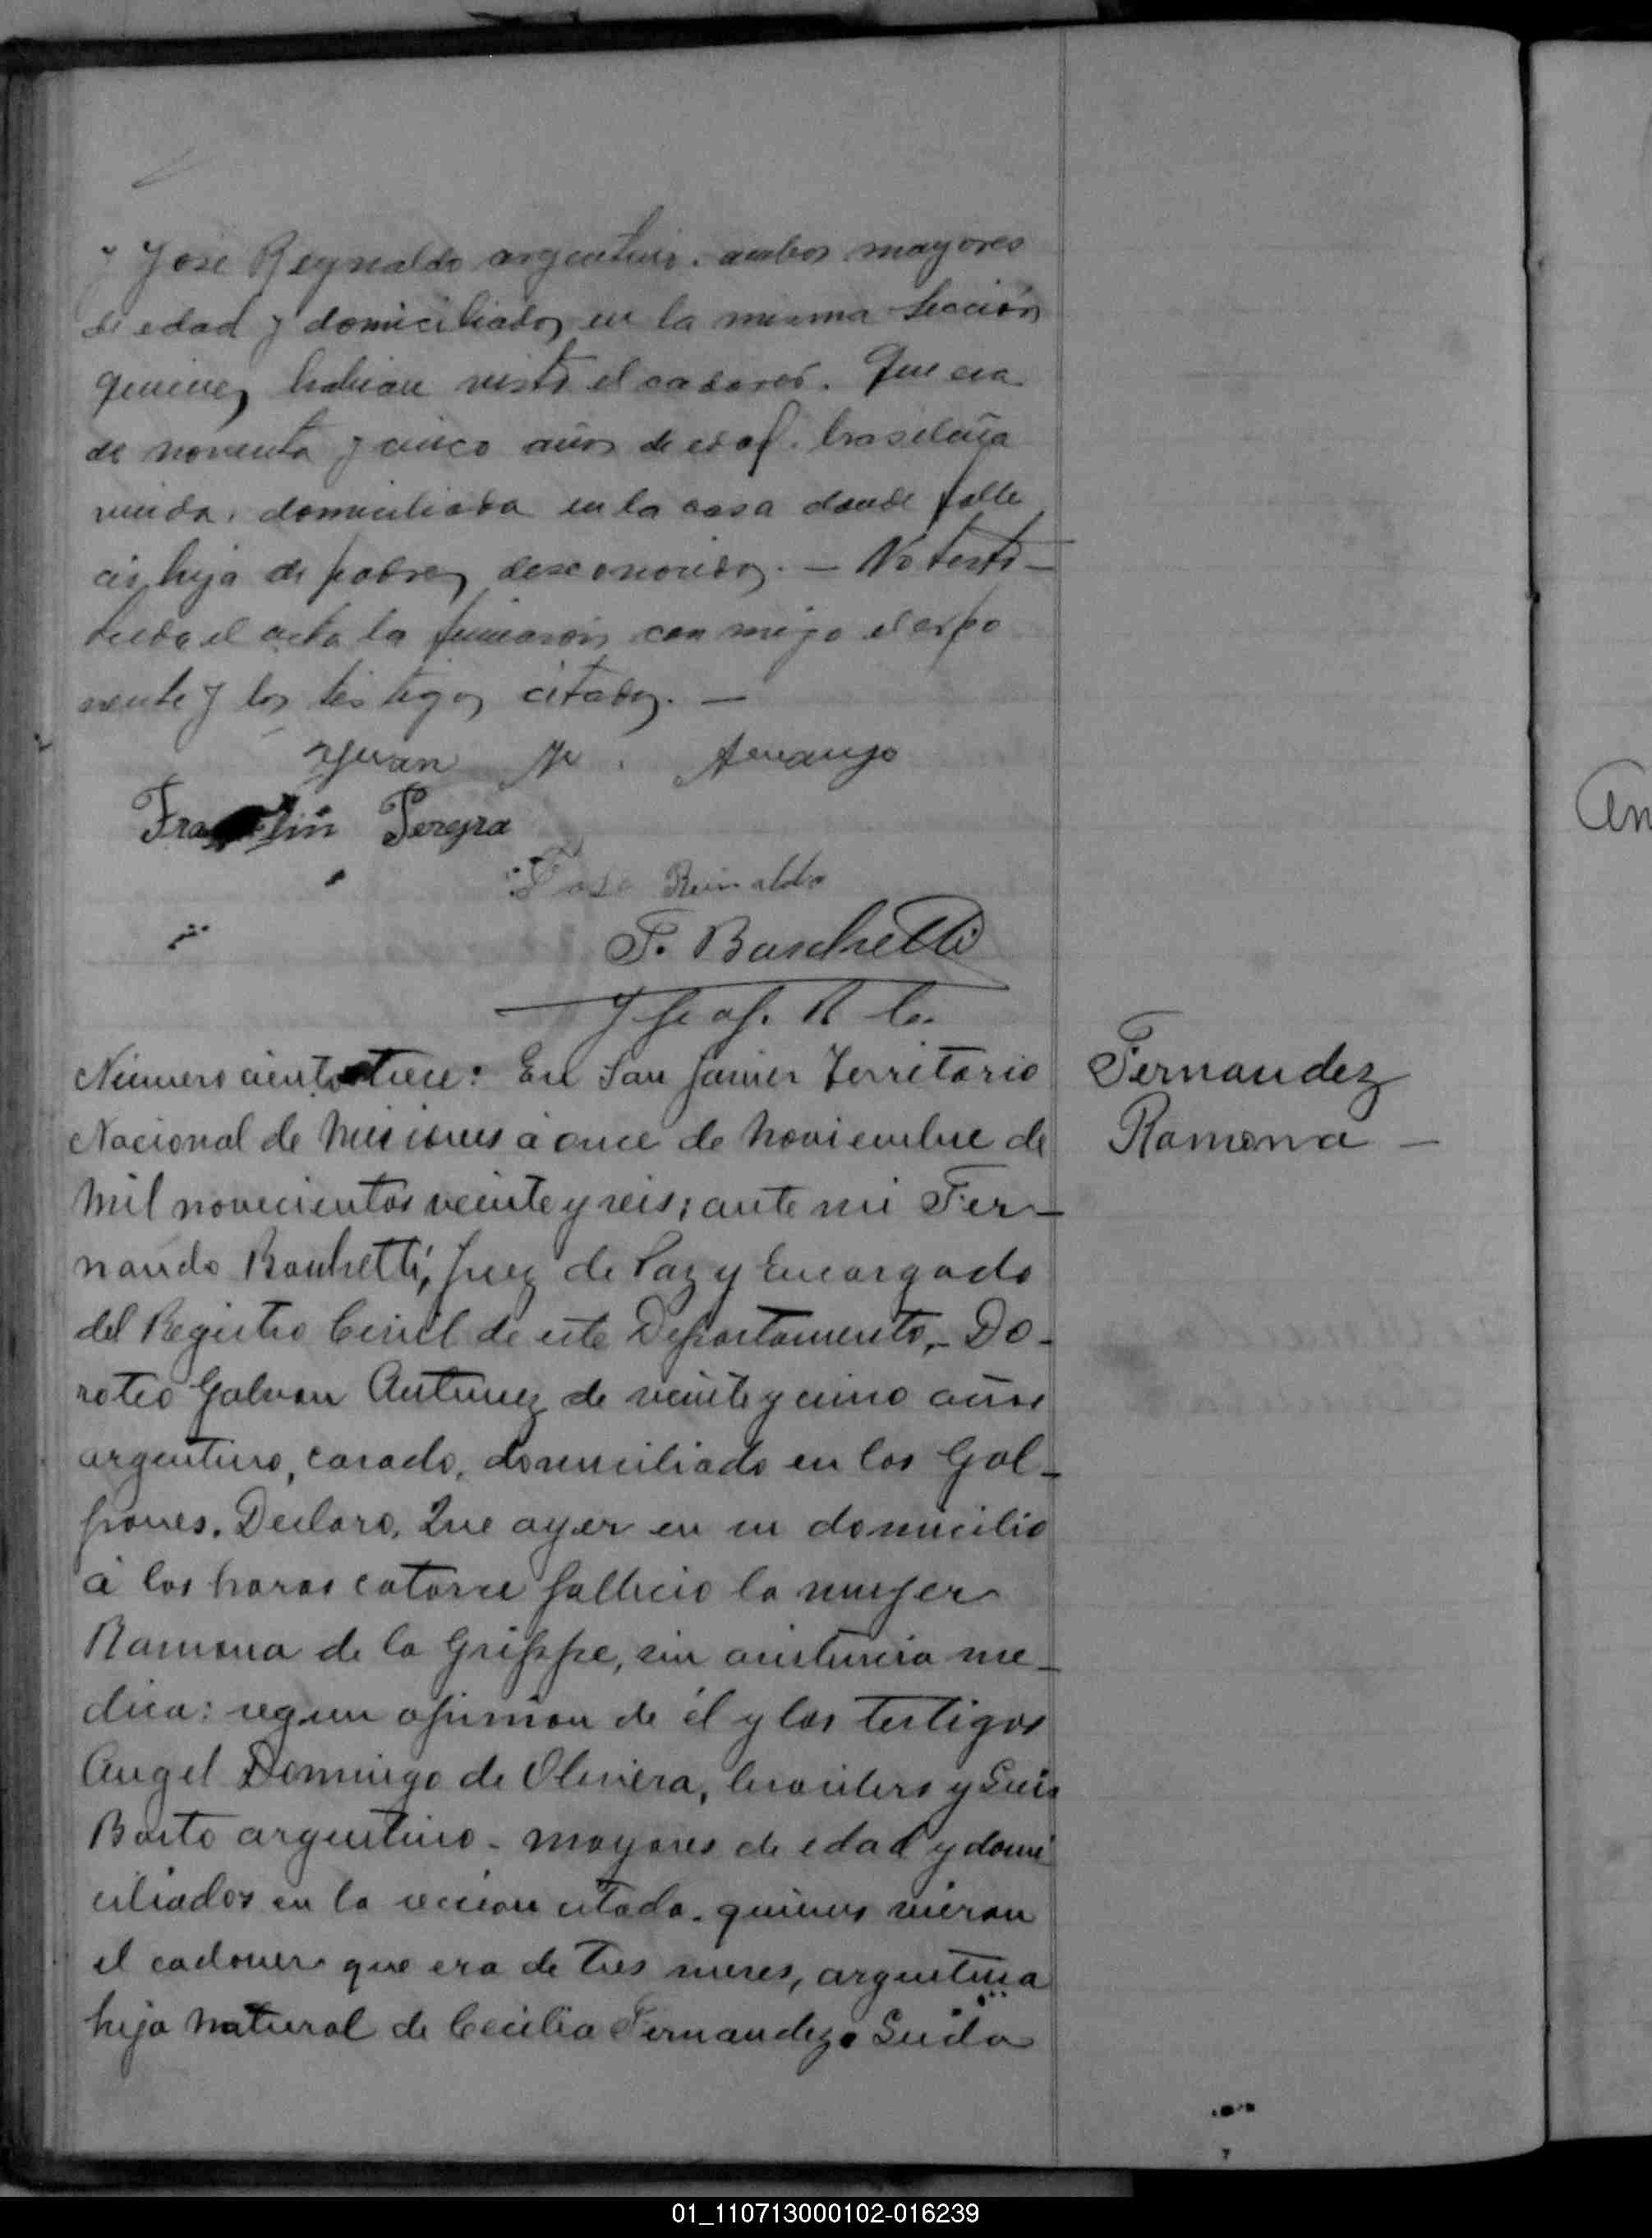 y José Reynaldo argentino. ambos mayores
de edad y domiciliados en la misma sección
quienes habian visto el cadaver. Que era
de noventa y cinco años de edad. brasileña
viuda, domiciliada en la casa donde falle
cio, hija de padres desconocidos. — No testó —
Leida el acta la firmaron con migo el expo
nente y los testigos citados. —
Juan
Franklin Pereyra
Jose Reinaldo
F. Baschetti
J. R. C.
Número ciento trece: En San Javier Territorio
Nacional de Misiones á once de Noviembre de
mil novecientos veinte y seis; ante mi Fer-
nando Baschetti, Juez de Paz y Encargado
del Registro Civil de este Departamento,- Do-
roteo Galvan Antunez de veinte y cinco años
argentino, casado, domiciliado en los Gal-
pones. Declaro, Que ayer en su domicilio
á las horas catorce fallecio la mujer
Ramona de la Grippe, sin asistencia me-
dica: segun opinion de él y los testigos
Angel Domingo de Olivera, brasilero y Luis
argentino - mayores de edad y domi
ciliados en la seccion citada. quienes vieron
el cadaver que era de tres meses, argentina
hija natural de Cecilia Fernandez. Leida
Fernandez
Ramona —
An
01_110713000102-016239